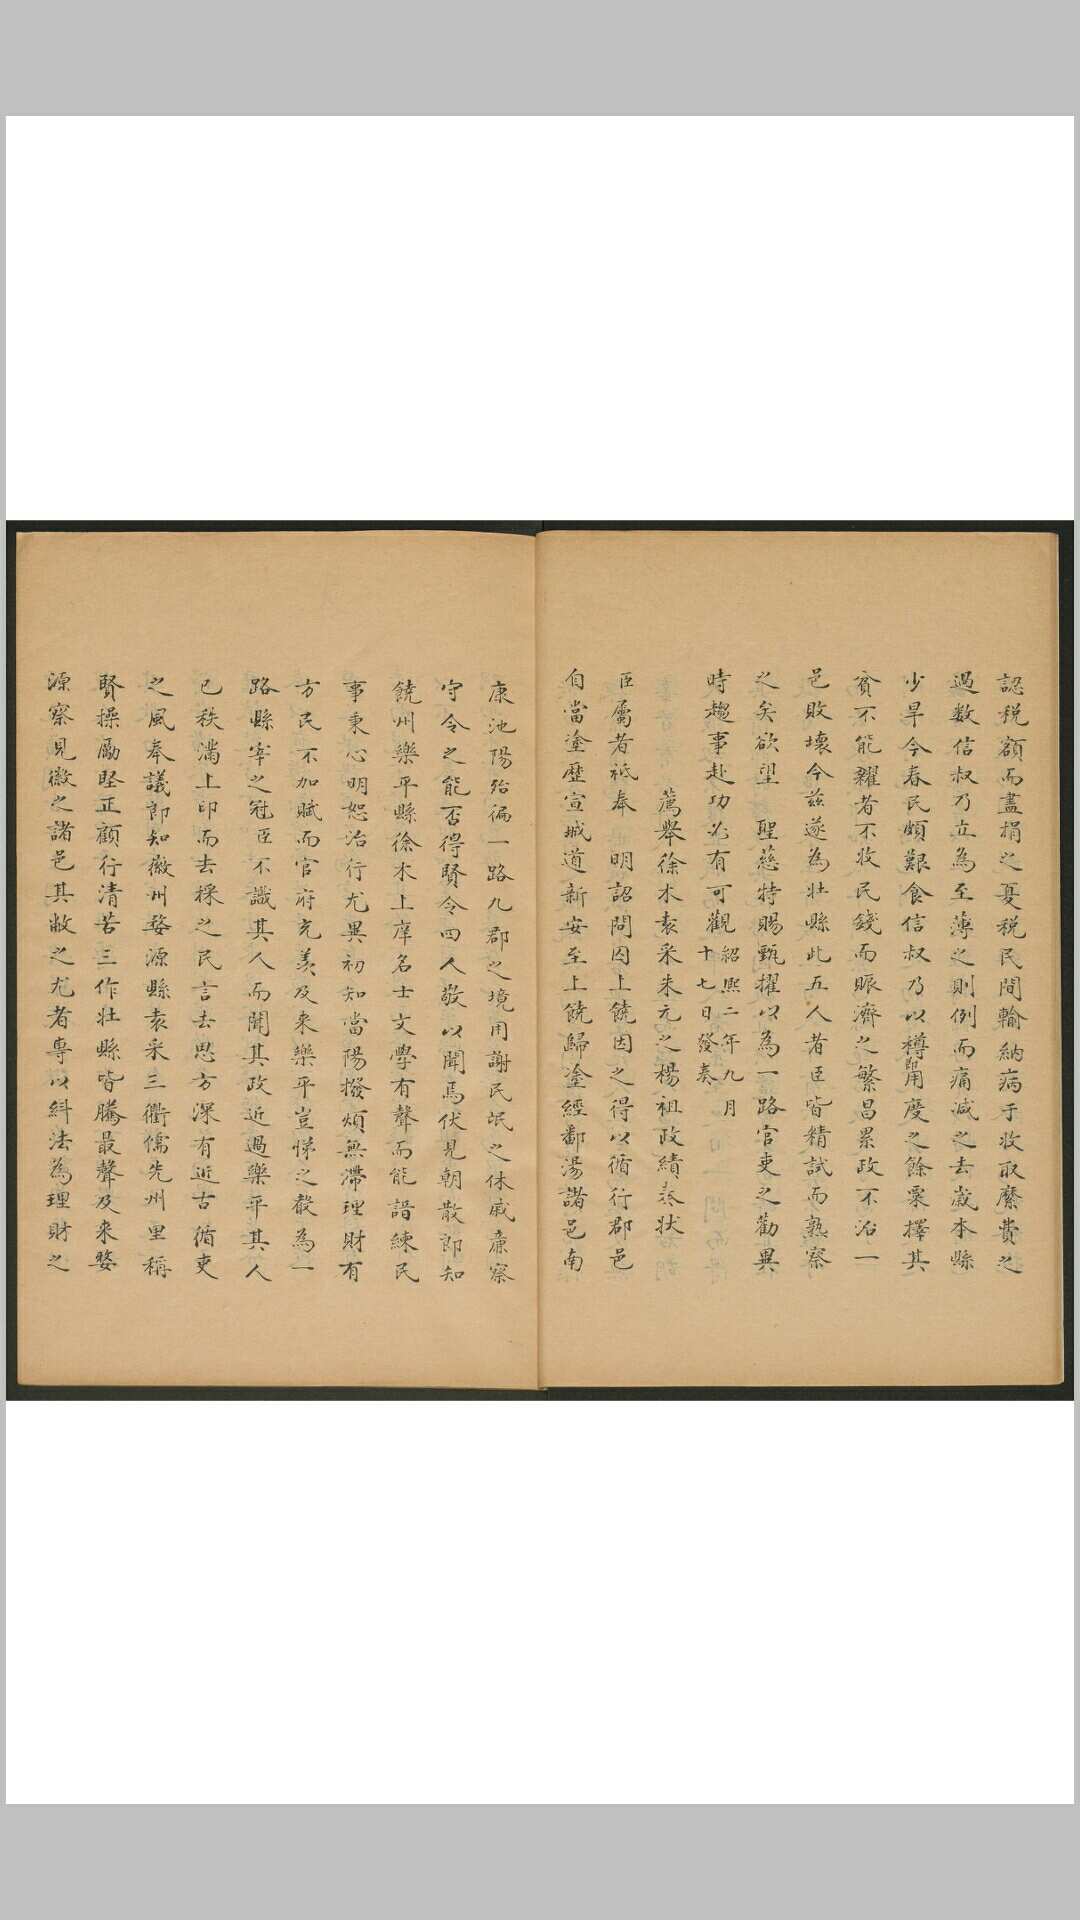 認稅額而盡捐之夏稅民間輸納病于收取縻費之
過數信叔乃立為至薄之則例而痛減之去歲本縣
少旱今春民頗艱食信叔乃以樽節用度之餘粟擇其
貧不能糴者不收民錢而賑濟之繁昌累政不治一
邑敗壞今茲遂為壯縣此五人者臣皆精試而熟察
之矣欲望 聖慈特賜甄擢以為一路官吏之勸異
時趨事赴功必有可觀紹熙二年九月
十七日發奏
薦舉徐木袁采朱元之楊祖政績奏狀
臣屬者祗奉 明詔問囚上饒因之得以循行郡邑
自當塗歷宣城道新安至上饒歸塗經鄱湯諸邑南
康池陽殆徧一路九郡之境用謝民氓之休戚亷察
守令之能否得賢令四人敬以聞焉伏見朝散郎知
饒州樂平縣徐木上庠名士文學有聲而能諳練民
事秉心明恕治行尤異初知當陽撥煩無滯理財有
方民不加賦而官府充羨及来樂平豈悌之聲為一
路縣宰之冠臣不識其人而聞其政近過樂平其人
已秩滿上印而去採之民言去思方深有近古循吏
之風奉議郎知徽州婺源縣袁采三衢儒先州里稱
賢操勵堅正顧行清苦三作壯縣皆騰最聲及来婺
源察見徽之諸邑其敝之尤者專以糾法為理財之